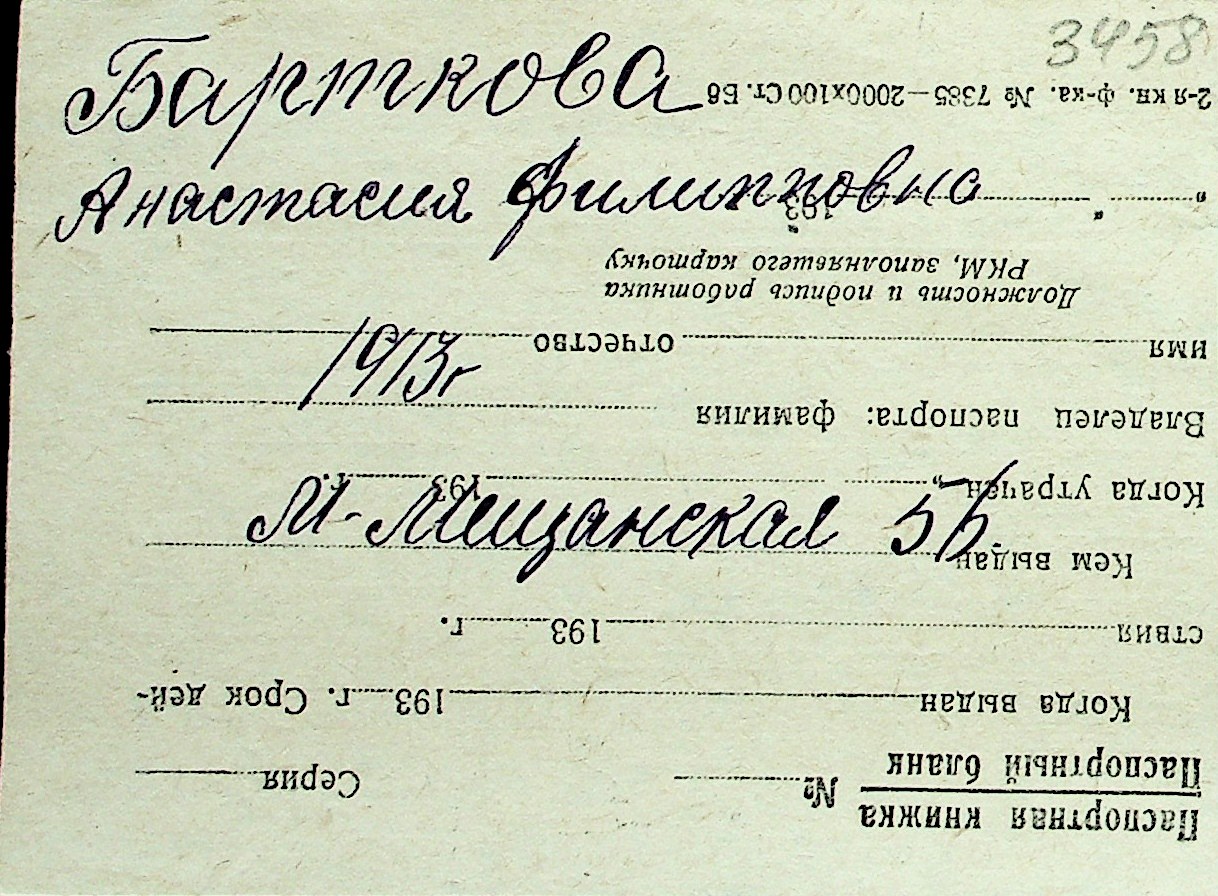 3458
Барткова
Анастасия Филипповна
1913г
М-Мещанская 5Б
Паспортная книжка
Паспортный бланк
№ Серия
Когда выдан 193 г. Срок дей-
ствия 193 г.
Кем выдан
Когда утрачен „ 193 г.
Владелец паспорта: фамилия
имя отчество
Должность и подпись работника
РКМ, заполнявшего карточку
„ " 193
2-я кн. ф-ка. № 7385—2000х100 Ст. Б6